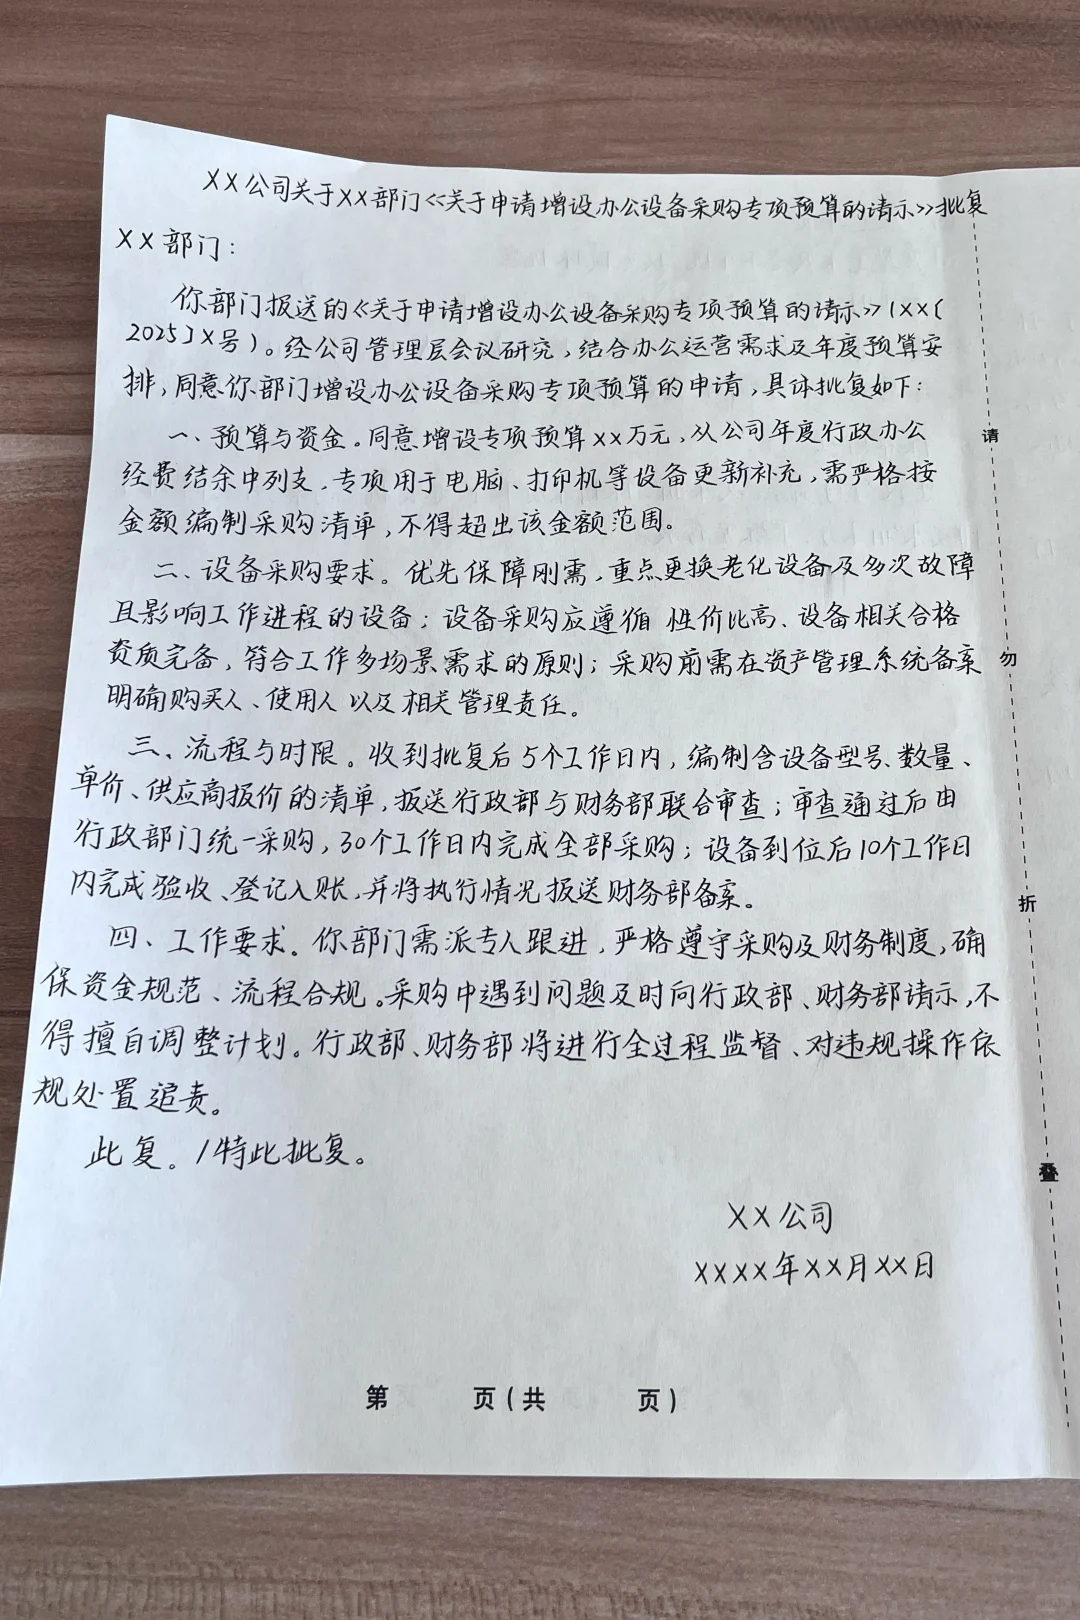 XX公司关于XX部门《关于申请增设办公设备采购专项预算的请示》批复
XX部门：
你部门报送的《关于申请增设办公设备采购专项预算的请示》(XX〔
2025〕X号)。经公司管理层会议研究，结合办公运营需求及年度预算安
排，同意你部门增设办公设备采购专项预算的申请，具体批复如下：
一、预算与资金。同意增设专项预算XX万元，从公司年度行政办公
经费结余中列支，专项用于电脑、打印机等设备更新补充，需严格按
金额编制采购清单，不得超出该金额范围。
二、设备采购要求。优先保障刚需，重点更换老化设备及多次故障
且影响工作进程的设备；设备采购应遵循 性价比高、设备相关合格
资质完备，符合工作多场景需求的原则；采购前需在资产管理系统备案
明确购买人、使用人以及相关管理责任。
三、流程与时限。收到批复后5个工作日内，编制含设备型号、数量、
单价、供应商报价的清单，报送行政部与财务部联合审查；审查通过后由
行政部门统一采购，30个工作日内完成全部采购；设备到位后10个工作日
内完成验收、登记入账，并将执行情况报送财务部备案。
四、工作要求。你部门需派专人跟进，严格遵守采购及财务制度，确
保资金规范、流程合规。采购中遇到问题及时向行政部、财务部请示，不
得擅自调整计划。行政部、财务部将进行全过程监督、对违规操作依
规处置追责。
此复。/特此批复。
XX公司
XXXX年XX月XX日
第 页(共 页)
请
勿
折
叠